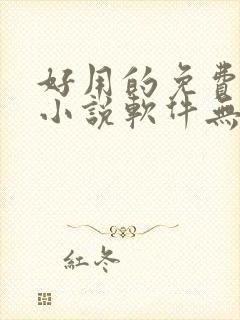 好用的免費
小說軟件無
紅冬